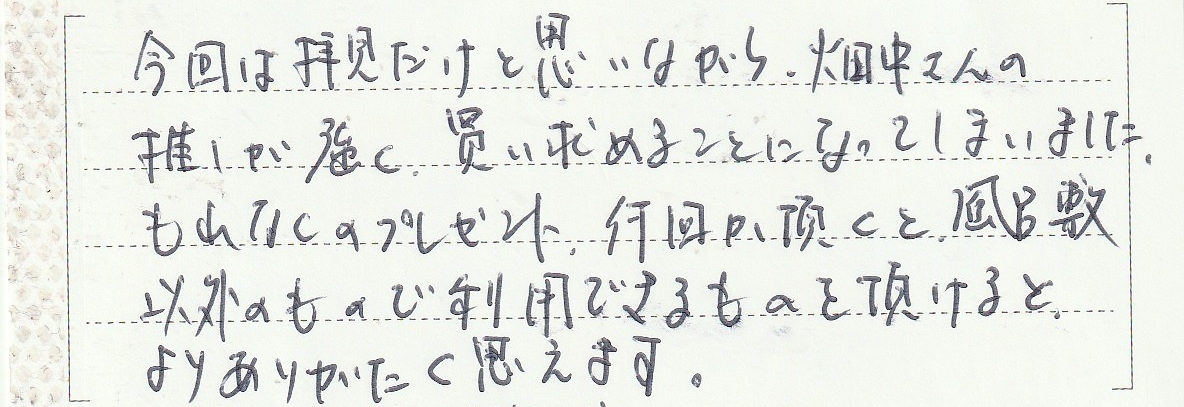 今回は拝見だけと思いながら、畑中さんの
推しが強く、買い求めることになってしまいました。
もれなくのプレゼント、何回か頂くと、風呂敷
以外のもので利用できるものを頂けると、
よりありがたく思えます。